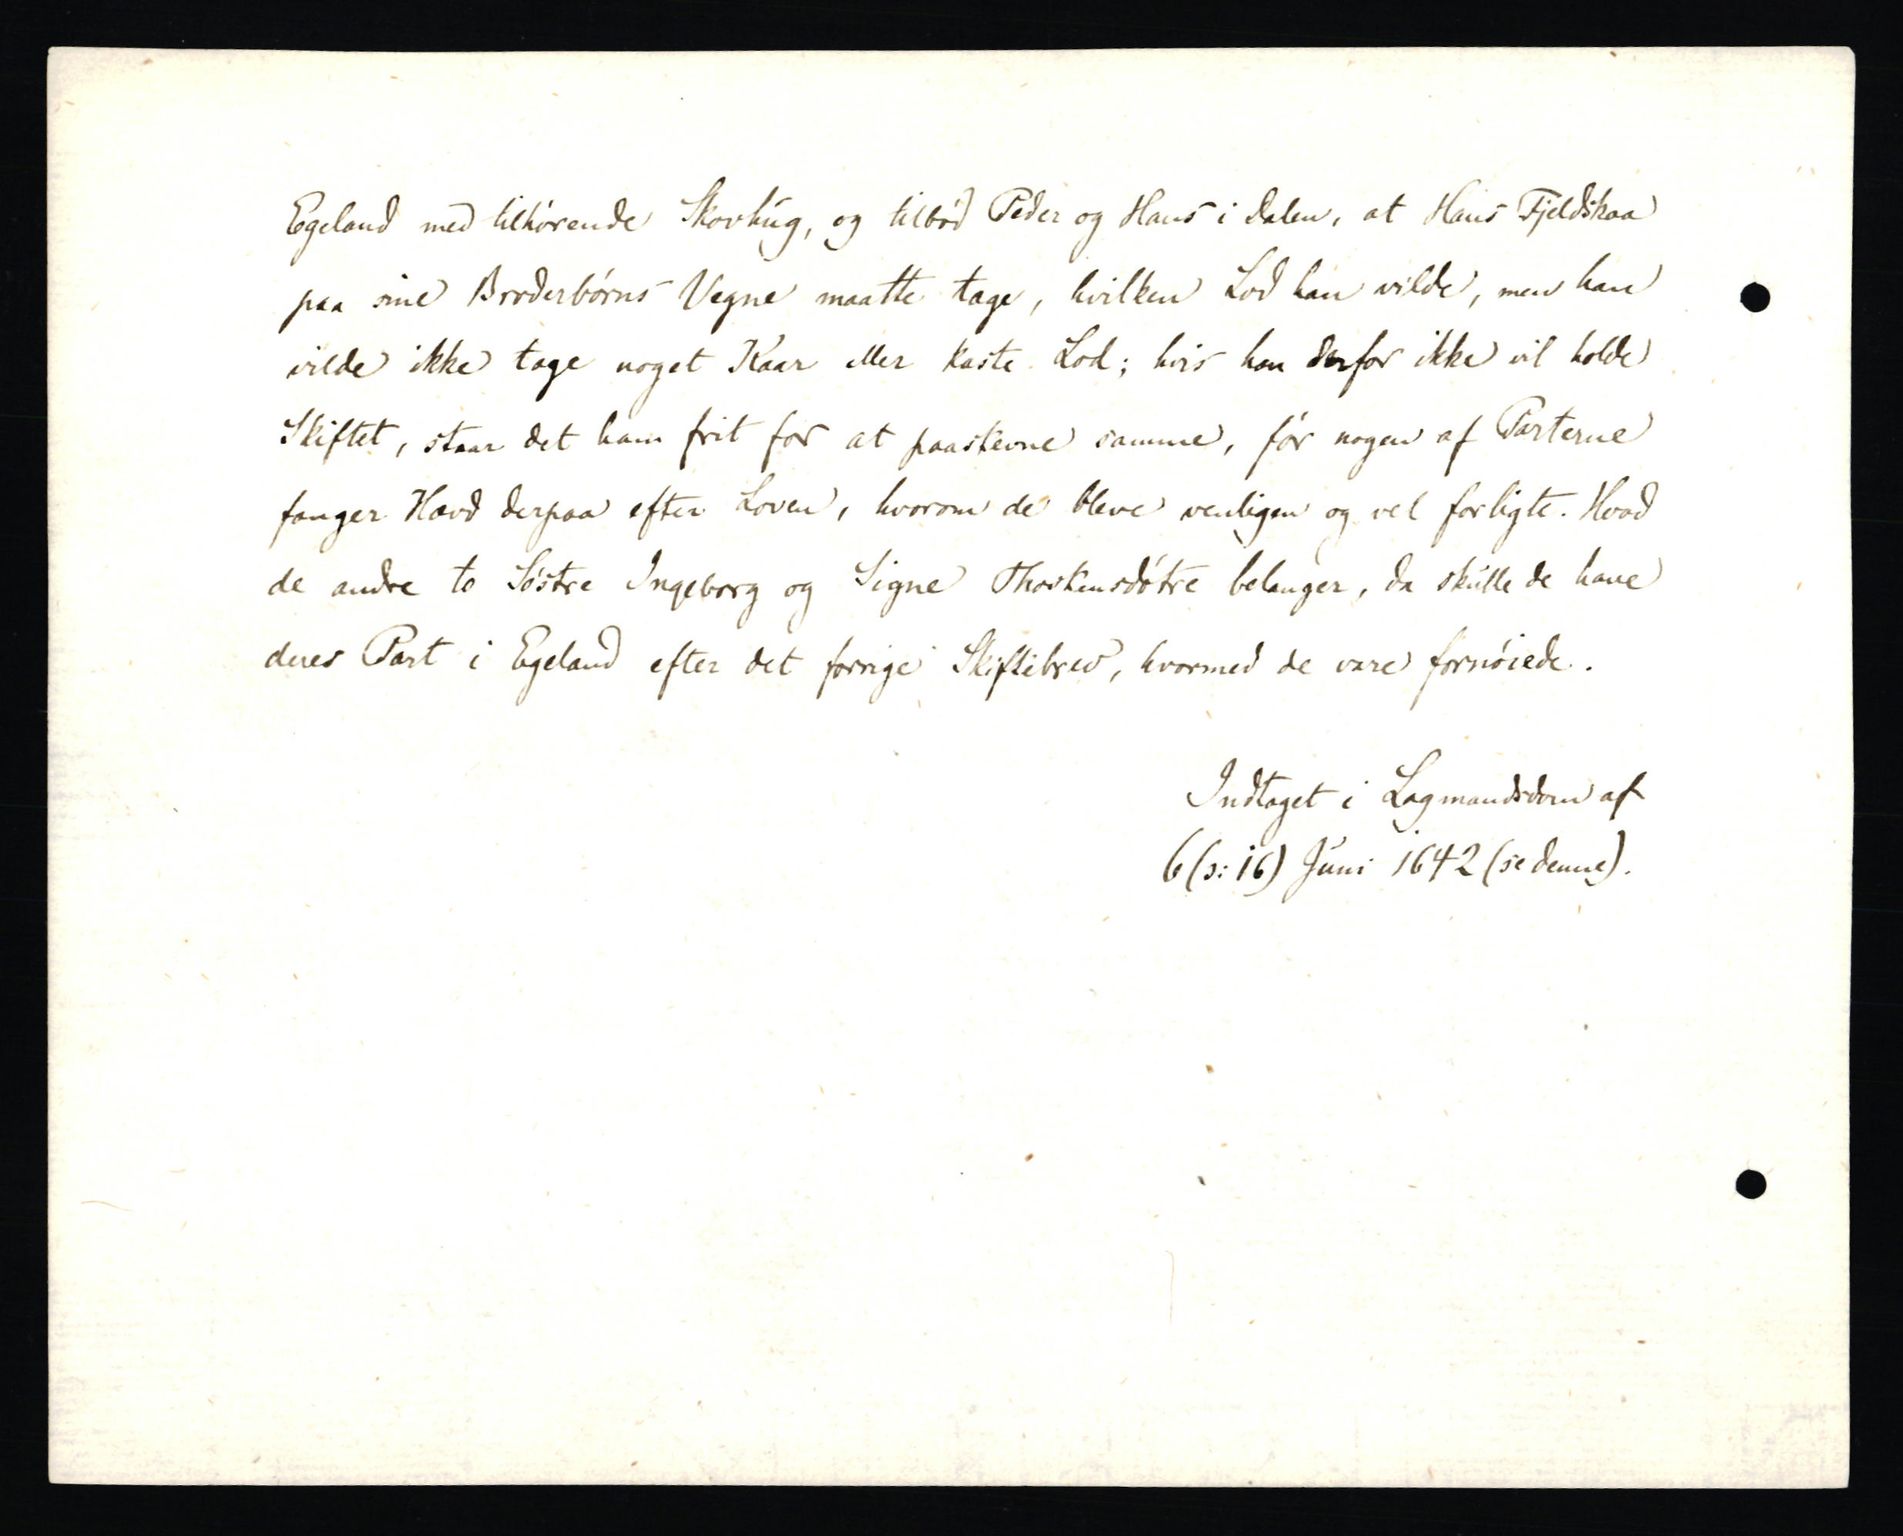 Egeland med tilhørende Skovhug, og tilbød Peder og Hans i Dalen, at Hans Fjeldskaa
paa sine Broderbørns Vegne maatte tage, hvilken Lod han vilde, men han
vilde ikke tage noget Kaar eller kaste Lod; hvis han derfor ikke vil holde
Skiftet, staar det ham frit for at paastevne samme, før nogen af Parterne
fanger Hævd derpaa efter Loven, hvorom de bleve venligen og vel forligte. Hvad
de andre to Søstre Ingeborg og Signe belanger, da skulle de have
deres Part i Egeland efter det forrige Skiftebrev, hvormed de vare fornøiede.
Indtaget i Lagmandsdom af
6 (ɔ: 16) Juni 1642 (se denne).